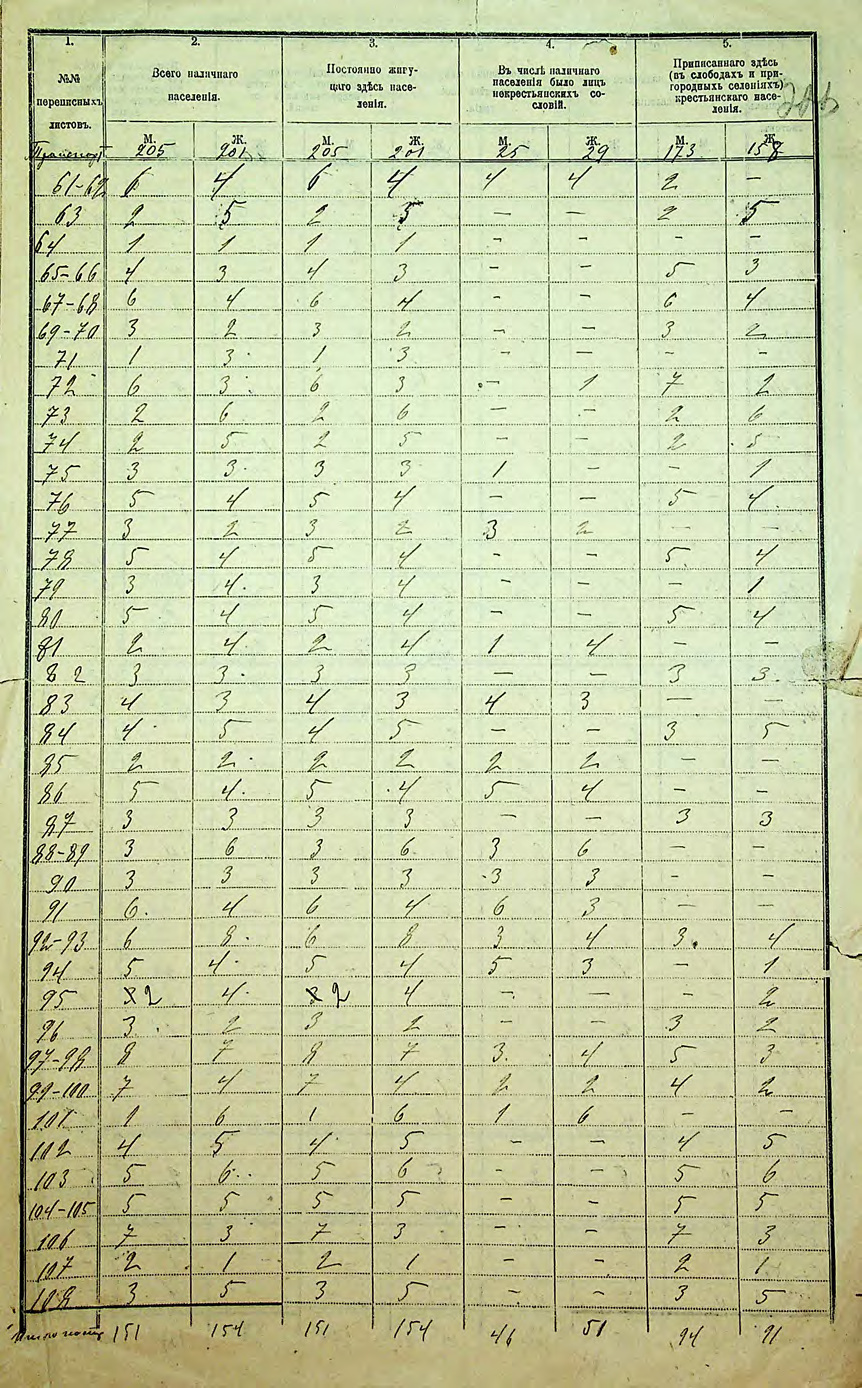 1. 2. 3. 4. 5.
№№ переписныхъ листовъ.
Всего наличнаго населенія.
Постоянно живу-щаго здѣсь насе-ленія.
Въ числѣ наличнаго населенія было лицъ некрестьянскихъ со-словій.
Приписаннаго здѣсь (въ слободахъ и при-городныхъ селеніяхъ) крестьянскаго насе-ленія.
М. Ж. М. Ж. М. Ж. М. Ж.
Транспорт 205 201 205 201 25 29 173 158
61-62 6 4 6 4 4 4 2 —
63 2 5 2 5 — — 2 5
64 1 1 1 1 - - - -
65-66 4 3 4 3 - - 5 3
67-68 6 4 6 4 - - 6 4
69-70 3 2 3 2 - - 3 2
71 1 3 1 3 — — — -
72 6 3 6 3 — 1 7 2
73 2 6 2 6 — - 2 6
74 2 5 2 5 — — 2 5
75 3 3 3 3 1 — — 1
76 5 4 5 4 — — 5 4
77 3 2 3 2 3 2 — —
78 5 4 5 4 - - 5 4
79 3 4 3 4 - - - 1
80 5 4 5 4 - - 5 4
81 2 4 2 4 1 4 — -
82 3 3 3 3 — — 3 3
83 4 3 4 3 4 3 — —
84 4 5 4 5 — — 3 5
85 2 2 2 2 2 2 — —
86 5 4 5 4 5 4 — —
87 3 3 3 3 - — 3 3
88-89 3 6 3 6 3 6 — —
90 3 3 3 3 3 3 - -
91 6 4 6 4 6 3 — —
92-93 6 8 6 8 3 4 3 4
94 5 4 5 4 5 3 — 1
95 2 4 2 4 — — — 2
96 3 2 3 2 — — 3 2
97-98 8 7 8 7 3 4 5 3
99-100 7 4 7 4 2 2 4 2
101 1 6 1 6 1 6 — -
102 4 5 4 5 — — 4 5
103 5 6 5 6 - - 5 6
104-105 5 5 5 5 - - 5 5
106 7 3 7 3 - - 7 3
107 2 1 2 1 - - 2 1
108 3 5 3 5 - - 3 5
151 154 151 154 46 51 94 91